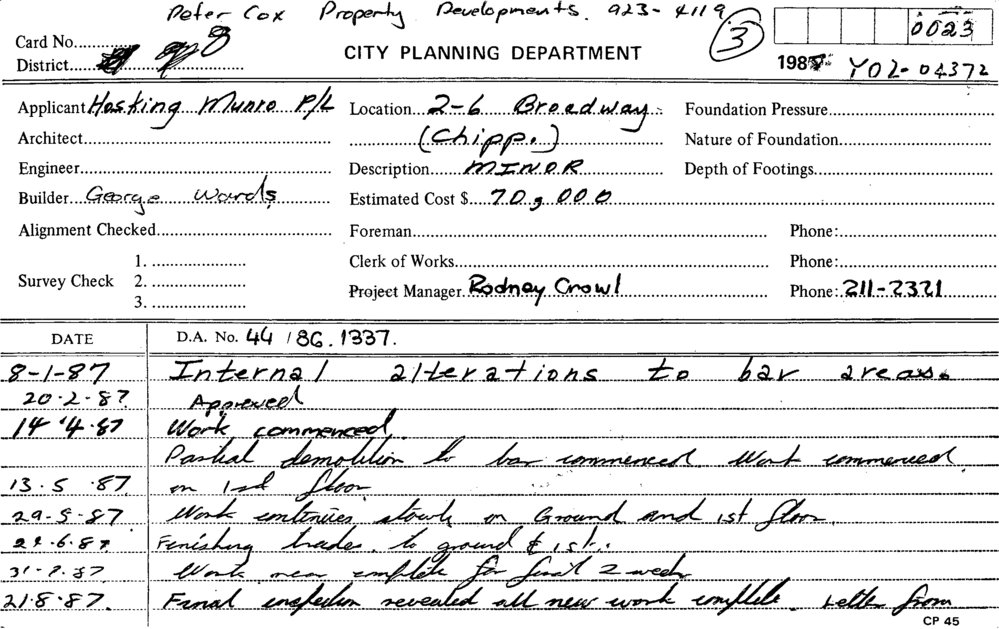 Peter Cox Property Developments. 923-4119
Card No. 3 0023
District 928 CITY PLANNING DEPARTMENT 198 Y02-04372
Applicant Hosking Munro P/L Location 2-6 Broadway Foundation Pressure
Architect (Chipp.) Nature of Foundation
Engineer Description MINOR Depth of Footings
Builder George Wards Estimated Cost $ 70,000
Alignment Checked Foreman Phone:
1. Clerk of Works Phone:
Survey Check 2. Project Manager Rodney Crowl Phone: 211-2321
3.
DATE D.A. No. 44/86.1337.
8-1-87 Internal alterations to bar areas.
20.2.87. Approved
14.4.87 Work commenced.
Partial demolition to bar commenced. Work commenced
13.5.87. on 1st floor
29-5-87 Work continues slowly on Ground and 1st floor.
.6.87 Finishing trades. to ground & 1st..
31-7.87 Work near complete for final 2 weeks
21.8.87. Final inspection revealed all new work complete. Letter from
CP 45